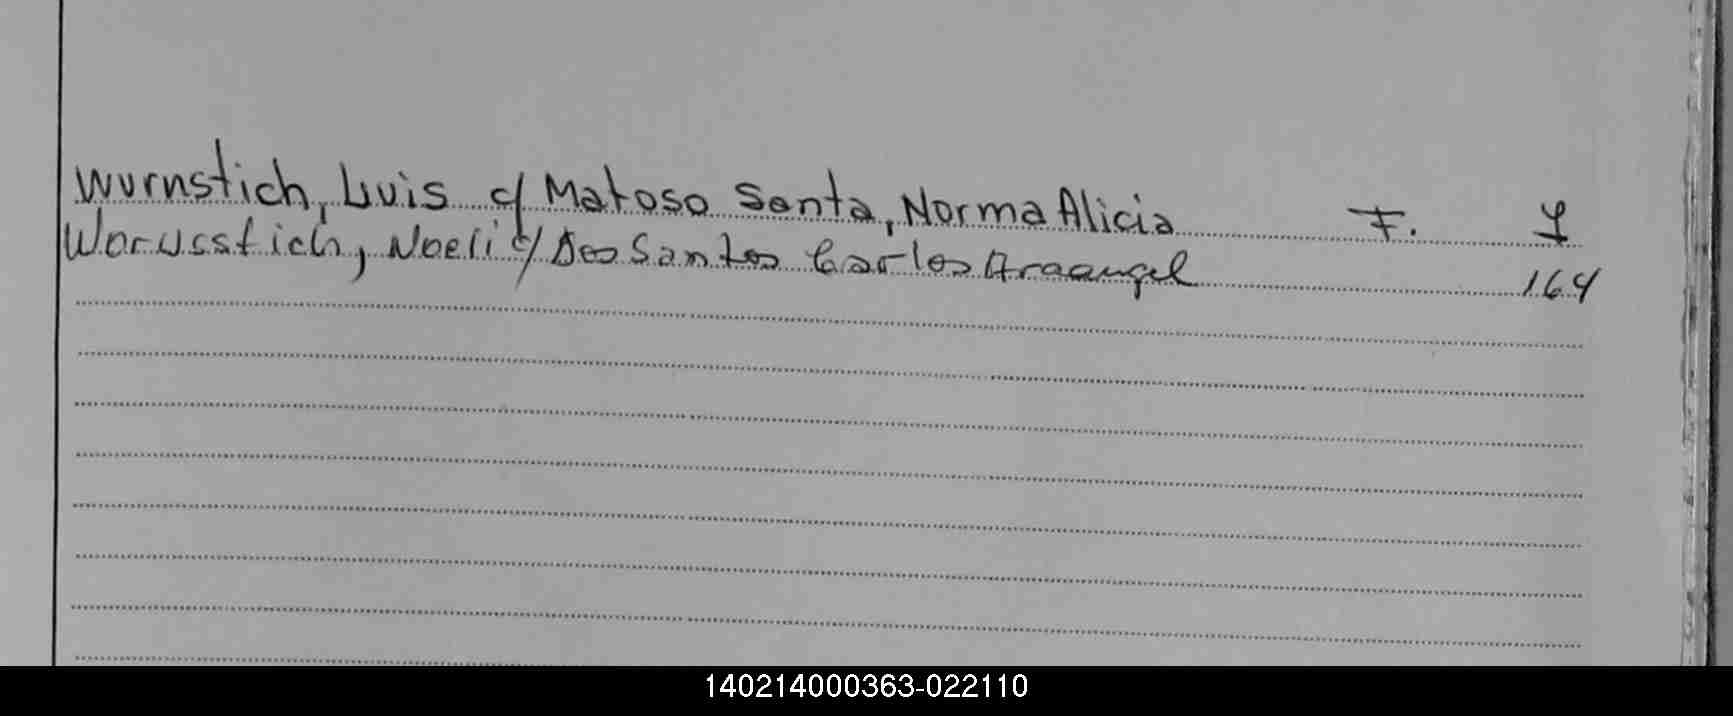 Wurnstich, Luis c/ Matoso Santa, Norma Alicia F. 1
Worusstich, Noeli c/ Dos Santos Carlos Araangel 164
140214000363-022110